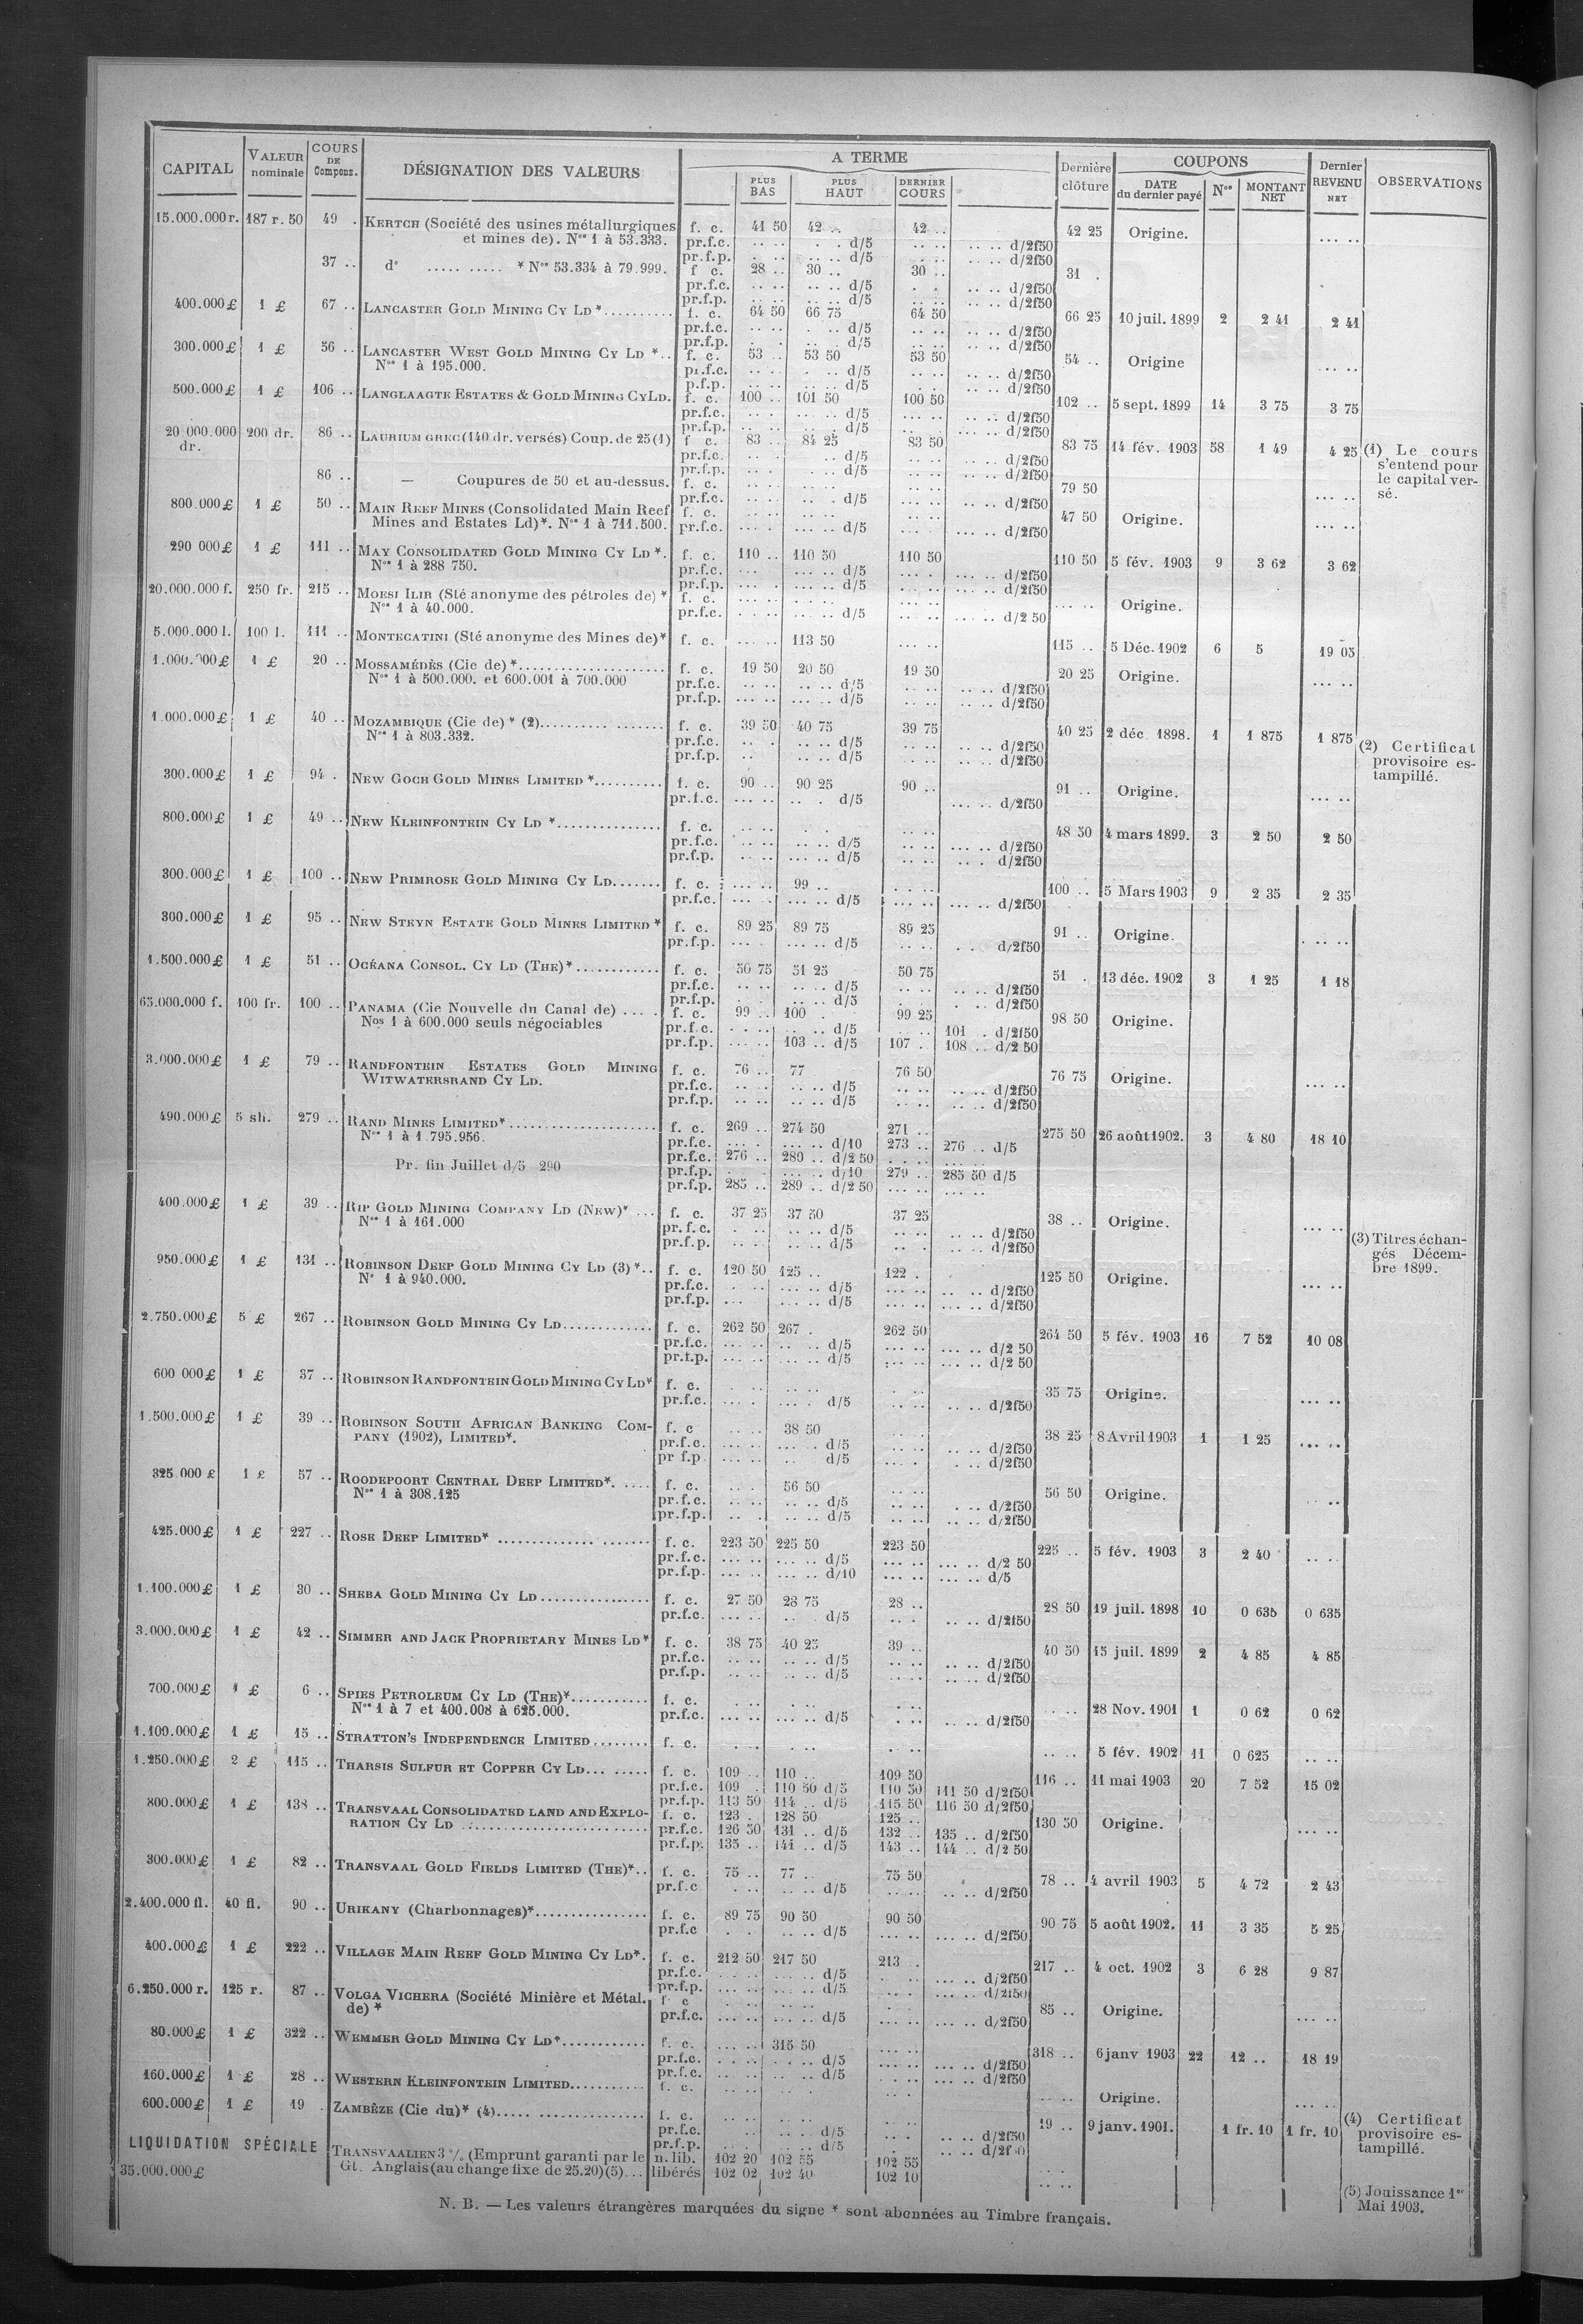 CAPITAL | VALEUR nominale | COURS DE Compens. | DÉSIGNATION DES VALEURS | A TERME | PLUS BAS | PLUS HAUT | DERNIER COURS | Dernière clôture | COUPONS | DATE du dernier payé | Nos | MONTANT NET | Dernier REVENU NET | OBSERVATIONS
15.000.000 r. 187 r. 50 49 . KERTCH (Société des usines métallurgiques f. c. 41 50 42 .. 42 .. 42 25 Origine. ... ..
et mines de). Nos 1 à 53.333. pr.f.c. .. .. . . d/5 .. .. .. .. d/2f50
pr.f.p. . .. .. .. d/5 . .. .. .. d/2f50
37 .. do ..... ..... * Nos 53.334 à 79.999. f c. 28 .. 30 .. 30 .. 31 .
pr.f.c. .. .. .. .. d/5 . . .. .. d/2f50
pr.f.p. .. .. .. .. d/5 .. .. .. .. d/2f50
400.000 £ 1 £ 67 .. LANCASTER GOLD MINING CY LD *.......... f. c. 64 50 66 75 64 50 66 25 10 juil. 1899 2 2 41 2 41
pr.f.c. .. .. . .. d/5 .. .. .. .. d/2f50
pr.f.p. . . .. . d/5 .. .. .. .. d/2f50
300.000 £ 1 £ 56 .. LANCASTER WEST GOLD MINING CY LD *.. f. c. 53 .. 53 50 53 50 54 .. Origine ... ..
Nos 1 à 195.000. pr.f.c. .. .. . .. d/5 .. .. .. .. d/2f50
p.f.p. .. .. .. .. d/5 . .. .. .. d/2f50
500.000 £ 1 £ 106 .. LANGLAAGTE ESTATES & GOLD MINING CY LD. f. c. 100 .. 101 50 100 50 102 .. 5 sept. 1899 14 3 75 3 75
pr.f.c. .. . ... .. d/5 ... .. .. .. d/2f50
pr.f.p. .. .. .. .. d/5 .. ... .. d/2f50
20 000.000 dr. 200 dr. 86 .. LAURIUM GREC (140 dr. versés) Coup. de 25 (1) f c. 83 .. 84 25 83 50 83 75 14 fév. 1903 58 1 49 4 25 (1) Le cours
pr.f.c. .. . .. d/5 .. .. .. .. d/2f50 s'entend pour
pr.f.p. .. . . .. d/5 .. .. .. .. d/2f50 le capital ver-
86 .. — Coupures de 50 et au-dessus. f. c. .. .. .. .. .. .. 79 50 ... .. sé.
pr.f.c. .. .. .. . d/5 ... .. ... .. d/2f50
800.000 £ 1 £ 50 .. MAIN REEF MINES (Consolidated Main Reef f. c. .. .. .. .. .. .. 47 50 Origine. ... ..
Mines and Estates Ld)*. Nos 1 à 711.500. pr.f.c. ... . ... .. d/5 ... .. ... .. d/2f50
290 000 £ 1 £ 111 .. MAY CONSOLIDATED GOLD MINING CY LD *. f. c. 110 .. 110 50 110 50 110 50 5 fév. 1903 9 3 62 3 62
Nos 1 à 288 750. pr.f.c. ... ... .. d/5 ... . ... .. d/2f50
pr.f.p. ... . ... .. d/5 ... .. ... .. d/2f50
20.000.000 f. 250 fr. 215 .. MOESI ILIR (Sté anonyme des pétroles de) * f. c. ... .. ... .. ... .. ... .. Origine.
Nos 1 à 40.000. pr.f.c. . .. ... .. d/5 .. .. ... .. d/2 50
5.000.000 l. 100 l. 111 .. MONTECATINI (Sté anonyme des Mines de)* f. c. ... .. 113 50 ... .. 115 .. 5 Déc. 1902 6 5 19 05
1.000.000 £ 1 £ 20 .. MOSSAMÉDÈS (Cie de) *..................... f. c. 19 50 20 50 19 50 20 25 Origine. ... ..
Nos 1 à 500.000. et 600.001 à 700.000 pr.f.c. .. .. .. .. d/5 .. .. .. .. d/2f50
pr.f.p. ... .. ... .. d/5 .. .. .. .. d/2f50
1.000.000 £ 1 £ 40 .. MOZAMBIQUE (Cie de) * (2).......... ....... f. c. 39 50 40 75 39 75 40 25 2 déc. 1898. 1 1 875 1 875 (2) Certificat
Nos 1 à 803.332. pr.f.c. .. . .. .. d/5 .. .. .. .. d/2f50 provisoire es-
pr.f.p. .. .. .. d/5 .. .. .. .. d/2f50 tampillé.
300.000 £ 1 £ 94 . NEW GOCH GOLD MINES LIMITED *.......... f. c. 90 .. 90 25 90 .. 91 .. Origine. ... ..
pr.f.c. ... .. .. . d/5 ... .. d/2f50
800.000 £ 1 £ 49 .. NEW KLEINFONTEIN CY LD *............... f. c. .. .. . . .. .. 48 50 4 mars 1899. 3 2 50 2 50
pr.f.c. .. .. .. .. d/5 .. .. ... .. d/2f50
pr.f.p. .. .. ... .. d/5 .. .. .. . d/2f50
300.000 £ 1 £ 100 .. NEW PRIMROSE GOLD MINING CY LD....... f. c. ... .. 99 .. . .. .. 100 .. 5 Mars 1903 9 2 35 2 35
pr.f.c. ... . ... .. d/5 ... .. ... .. d/2f50
300.000 £ 1 £ 95 .. NEW STEYN ESTATE GOLD MINES LIMITED * f. c. 89 25 89 75 89 25 91 .. Origine. . .. ..
pr.f.p. ... . ... .. d/5 .. .. . . d/2f50
1.500.000 £ 1 £ 51 .. OCÉANA CONSOL. CY LD (THE) *............ f. c. 50 75 51 25 50 75 51 . 13 déc. 1902 3 1 25 1 18
pr.f.c. .. .. .. .. d/5 .. .. .. .. d/2f50
pr.f.p. . . .. .. d/5 . . .. d/2f50
65.000.000 f. 100 fr. 100 .. PANAMA (Cie Nouvelle du Canal de) .... . f. c. 99 .. 100 . 99 25 98 50 Origine.
Nos 1 à 600.000 seuls négociables pr.f.c. . . .. .. .. d/5 . .. 101 . d/2f50
pr.f.p. ... .. 103 .. d/5 107 . 108 .. d/2 50
3.000.000 £ 1 £ 79 .. RANDFONTEIN ESTATES GOLD MINING f. c. 76 .. 77 76 50 76 75 Origine. ... ..
WITWATERSRAND CY LD. pr.f.c. .. .. .. .. d/5 .. .. .. .. d/2f50
pr.f.p. .. .. .. .. d/5 .. .. .. .. d/2f50
490.000 £ 5 sh. 279 .. RAND MINES LIMITED*..................... f. c. 269 .. 274 50 271 .. 275 50 26 août 1902. 3 4 80 18 10
Nos 1 à 1.795.956. pr.f.c. ... . ... .. d/10 273 .. 276 .. d/5
pr.f.c. 276 .. 280 .. d/2 50 . .. .. ... ..
Pr. fin Juillet d/5 290 pr.f.p. . . ... .. d/10 279 .. 285 50 d/5
pr.f.p. 285 .. 289 .. d/2 50 ... .. ... ..
400.000 £ 1 £ 39 .. RIP GOLD MINING COMPANY LD (NEW)* ... f. c. 37 25 37 50 37 25 38 .. Origine. ... ..
Nos 1 à 161.000 pr.f.c. . .. .. .. d/5 .. .. .. .. d/2f50 (3) Titres échan-
pr.f.p. .. .. .. .. d/5 .. . .. .. d/2f50 gés Décem-
950.000 £ 1 £ 131 .. ROBINSON DEEP GOLD MINING CY LD (3) *.. f. c. 120 50 125 .. 122 . 125 50 Origine. ... .. bre 1899.
No 1 à 940.000. pr.f.c. . .. ... .. d/5 ... .. .. .. d/2f50
pr.f.p. ... ... .. d/5 ... .. ... .. d/2f50
2.750.000 £ 5 £ 267 .. ROBINSON GOLD MINING CY LD............. f. c. 262 50 267 . 262 50 264 50 5 fév. 1903 16 7 52 10 08
pr.f.c. ... .. .. .. d/5 ... .. ... .. d/2 50
pr.t.p. ... .. ... .. d/5 ... .. ... .. d/2 50
600 000 £ 1 £ 37 .. ROBINSON RANDFONTEIN GOLD MINING CY LD* f. c. . .. .. .. . .. 35 75 Origine. ... ..
pr.f.c. ... . ... . d/5 .. .. .. .. d/2f50
1.500.000 £ 1 £ 39 .. ROBINSON SOUTH AFRICAN BANKING COM- f. c .. .. 38 50 .. . 38 25 8 Avril 1903 1 1 25 ... ..
PANY (1902), LIMITED*. pr.f.c. ... .. ... . d/5 .. .. .. .. d/2f50
pr f.p. ... .. .. d/5 ... . . .. d/2f50
325.000 £ 1 £ 57 .. ROODEPOORT CENTRAL DEEP LIMITED*. .... f. c. .. . 56 50 .. .. 56 50 Origine. ..
Nos 1 à 308.125 pr.f.c. .. .. .. .. d/5 .. .. . .. d/2f50
pr.f.p. .. . .. .. d/5 .. .. .. .. d/2f50
425.000 £ 1 £ 227 .. ROSE DEEP LIMITED* .............. ....... f. c. 223 50 225 50 223 50 225 .. 5 fév. 1903 3 2 40 .. ..
pr.f.c. ... .. ... .. d/5 ... .. ... .. d/2 50
pr.f.p. ... .. ... .. d/10 ... .. ... .. d/5
1.100.000 £ 1 £ 30 .. SHEBA GOLD MINING CY LD................ f. c. 27 50 28 75 28 .. 28 50 19 juil. 1898 10 0 635 0 635
pr.f.c. ... .. .. . d/5 .. . .. .. d/2f50
3.000.000 £ 1 £ 42 .. SIMMER AND JACK PROPRIETARY MINES LD* f. c. 38 75 40 25 39 .. 40 50 15 juil. 1899 2 4 85 4 85
pr.f.c. .. .. .. .. d/5 .. .. .. .. d/2f50
pr.f.p. .. .. .. .. d/5 .. .. .. .. d/2f50
700.000 £ 1 £ 6 .. SPIES PETROLEUM CY LD (THE)*........... f. c. .. .. .. .. ... .. .. .. 28 Nov. 1901 1 0 62 0 62
Nos 1 à 7 et 400.008 à 625.000. pr.f.c. ... .. ... .. d/5 . .. .. .. d/2f50
1.100.000 £ 1 £ 15 .. STRATTON'S INDEPENDENCE LIMITED........ f. c. .. .. . .. . .. .. .. 5 fév. 1902 11 0 625 .. ..
1.250.000 £ 2 £ 115 .. THARSIS SULFUR ET COPPER CY LD... ...... f. c. 109 .. 110 .. 109 50 116 .. 11 mai 1903 20 7 52 15 02
pr.f.c. 109 . 110 50 d/5 110 50 111 50 d/2f50
pr.f.p. 113 50 114 .. d/5 115 50 116 50 d/2f50
800.000 £ 1 £ 138 .. TRANSVAAL CONSOLIDATED LAND AND EXPLO- f. c. 123 . 128 50 125 .. 130 50 Origine. ... ..
RATION CY LD .......................... pr.f.c. 126 50 131 .. d/5 132 .. 135 .. d/2f50
pr.f.p. 135 .. 141 .. d/5 143 .. 144 .. d/2 50
300.000 £ 1 £ 82 .. TRANSVAAL GOLD FIELDS LIMITED (THE)*.. f. c. 75 .. 77 .. 75 50 78 .. 4 avril 1903 5 4 72 2 43
pr.f.c . .. .. .. d/5 .. .. .. .. d/2f50
2.400.000 fl. 40 fl. 90 .. URIKANY (Charbonnages)*................ f. c. 89 75 90 50 90 50 90 75 5 août 1902. 11 3 35 5 25
pr.f.c . . .. .. d/5 ... .. ... .. d/2f50
400.000 £ 1 £ 222 .. VILLAGE MAIN REEF GOLD MINING CY LD*. f. c. 212 50 217 50 213 .. 217 .. 4 oct. 1902 3 6 28 9 87
pr.f.c. ... .. ... .. d/5 . .. ... .. d/2f50
pr.f.p. ... .. ... .. d/5 .. . ... .. d/2f50
6.250.000 r. 125 r. 87 .. VOLGA VICHERA (Société Minière et Métal. f c .. .. .. .. .. .. 85 .. Origine. ... ..
de) * pr.f.c. ... .. ... .. d/5 ... .. ... .. d/2f50
80.000 £ 1 £ 322 .. WEMMER GOLD MINING CY LD*............ f. c. ... .. 315 50 ... .. 318 .. 6 janv 1903 22 12 .. 18 19
pr.f.c. . .. .. . .. .. d/5 ... .. ... .. d/2f50
pr.f.c. ... .. ... .. d/5 . .. .. ... .. d/2f50
160.000 £ 1 £ 28 .. WESTERN KLEINFONTEIN LIMITED........... f. c. .. .. .. . .. . .. .. Origine. ... ..
600.000 £ 1 £ 19 . ZAMBÈZE (Cie du)* (4)..... ............... f. c. .. .. .. .. .. .. 19 .. 9 janv. 1901. 1 fr. 10 1 fr. 10 (4) Certificat
pr.f.c. .. .. .. .. d/5 .. . .. .. d/2f50 provisoire es-
pr.f.p. .. . .. .. d/5 .. . .. .. d/2f50 tampillé.
LIQUIDATION SPÉCIALE TRANSVAALIEN 3 % (Emprunt garanti par le n. lib. 102 20 102 55 102 55
35.000.000 £ Gt. Anglais (au change fixe de 25.20) (5)... libérés 102 02 102 40 102 10 .. .. (5) Jouissance 1er
Mai 1903.
N. B. — Les valeurs étrangères marquées du signe * sont abonnées au Timbre français.